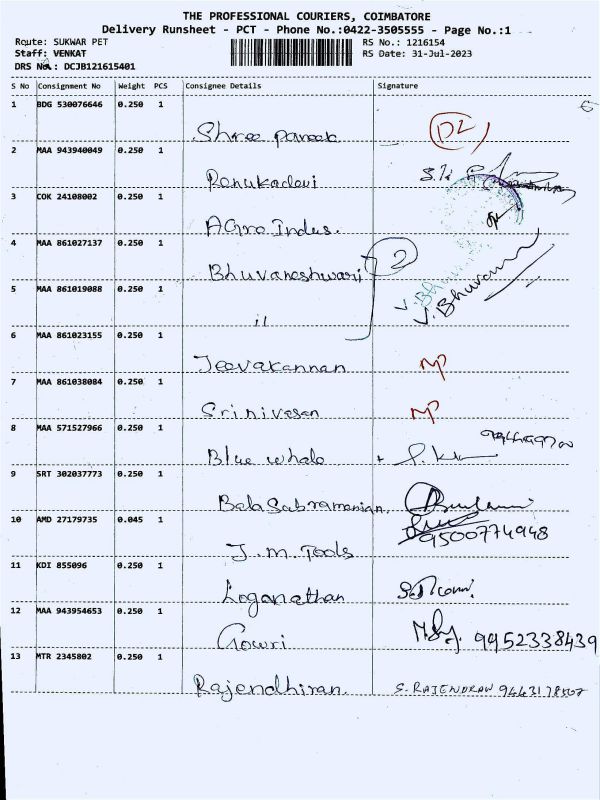 THE PROFESSIONAL COURIERS, COIMBATORE
Delivery Runsheet - PCT - Phone No.:0422-3505555 - Page No.:1
Route: SUKWAR PET RS No.: 1216154
Staff: VENKAT RS Date: 31-Jul-2023
DRS No.: DCJB121615401
S No Consignment No Weight PCS Consignee Details Signature
1 BDG 530076646 0.250 1
Shree pareek D2
2 MAA 943940049 0.250 1
Renukadevi
3 COK 24108002 0.250 1
Agro Indus.
4 MAA 861027137 0.250 1
Bhuvaneshwari 2
5 MAA 861019088 0.250 1
il J. Bhuvan
6 MAA 861023155 0.250 1
Jeevakannan NP
7 MAA 861038084 0.250 1
Srinivasan NP
8 MAA 571527966 0.250 1
Blue whale
9 SRT 302037773 0.250 1
Bala Sabramanian.
10 AMD 27179735 0.045 1 9500774948
J.m. Tools
11 KDI 855096 0.250 1
Loganathan
12 MAA 943954653 0.250 1
Gowri 9952338439
13 MTR 2345802 0.250 1
Rajendhiran. S. RAJENDRAN